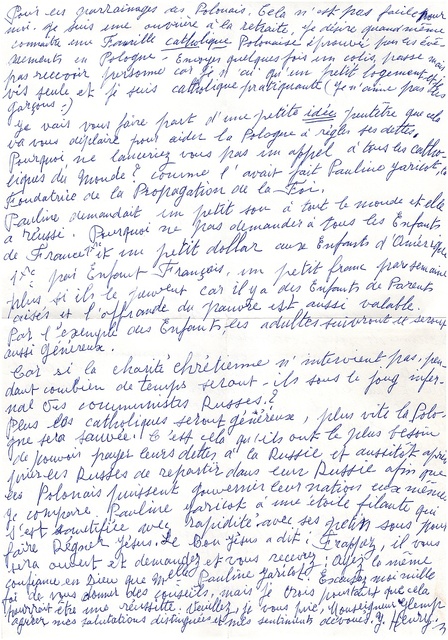 Pour les parrainages des Polonais. Cela n'est pas facile pour
moi. Je suis une ouvrière à la retraite, je désire quand même
connaître une Famille catholique Polonaise éprouvée par les évé
nements en Pologne - Envoyer quelques fois un colis, passe mais
pas recevoir personne car je n'ai qu'un petit logement et
vis seule et je suis catholique pratiquante (je n'aime pas les
garçons.)
Je vais vous faire part d'une petite idée peutêtre que cela
va vous déplaire pour aider la Pologne à règler ses dettes.
Pourquoi ne lanceriez vous pas un appel à tous les catho-
liques du Monde? comme l'avait fait Pauline Jaricot, la
Fondatrice de la Propagation de la Foi.
Pauline demandait un petit sou à tout le monde et elle
a réussi. Pourquoi ne pas demander à tous les Enfants
de France et un petit dollar aux Enfants d'Amérique
par Enfant Français, un petit franc par semaine
plus si ils le peuvent car il y a des Enfants de Parents
aisés et l'offrande du pauvre est aussi valable.
Par l'exemple des Enfants, les adultes suivront et seront
aussi généreux.
Car si la charité chrétienne n'intervient pas, pen
dant combien de temps seront-ils sous le joug infer
nal des communistes Russes?
Plus les catholiques seront généreux, plus vite la Polo-
gne sera sauvée. C'est cela qu'ils ont le plus besoin
de pouvoir payer leurs dettes à la Russie et aussitôt après
les Russes de repartir dans leur Russie afin que
les Polonais puissent gouverner leur nation eux même
Je compare Pauline Jaricot à une étoile filante qui
s'est sanctifiée avec rapidité avec ses petits sous pour
faire Régner Jésus. Le Bon Jésus a dit: Frappez, il vous
sera ouvert et demandez et vous recevrez: ayez la même
confiance en Dieu que Pauline Jaricot. Excusez moi mille
fois de vous donner des conseils, mais je crois pourtant que cela
pourrait être une réussite. Veuillez, je vous prie, Monseigneur
agréer mes salutations distinguées et mes sentiments dévoués.